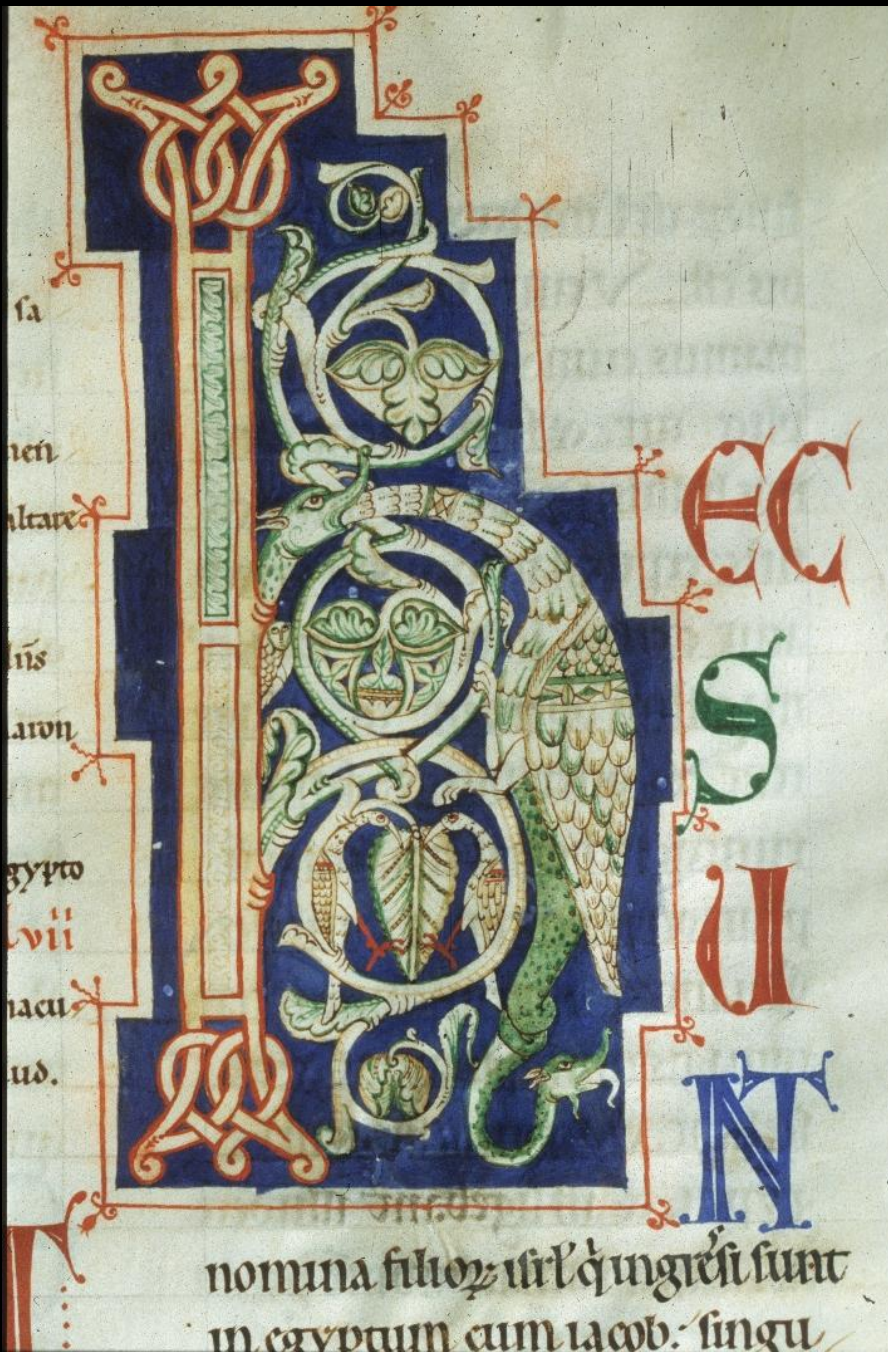 sa
men
altare
liis
aron
gypto
lvii
nacu
ud.
H
EC
S
U
NT
nomina filioꝝ isrl̕ q̇ ingressi sunt
in egyptum cum iacob. singu